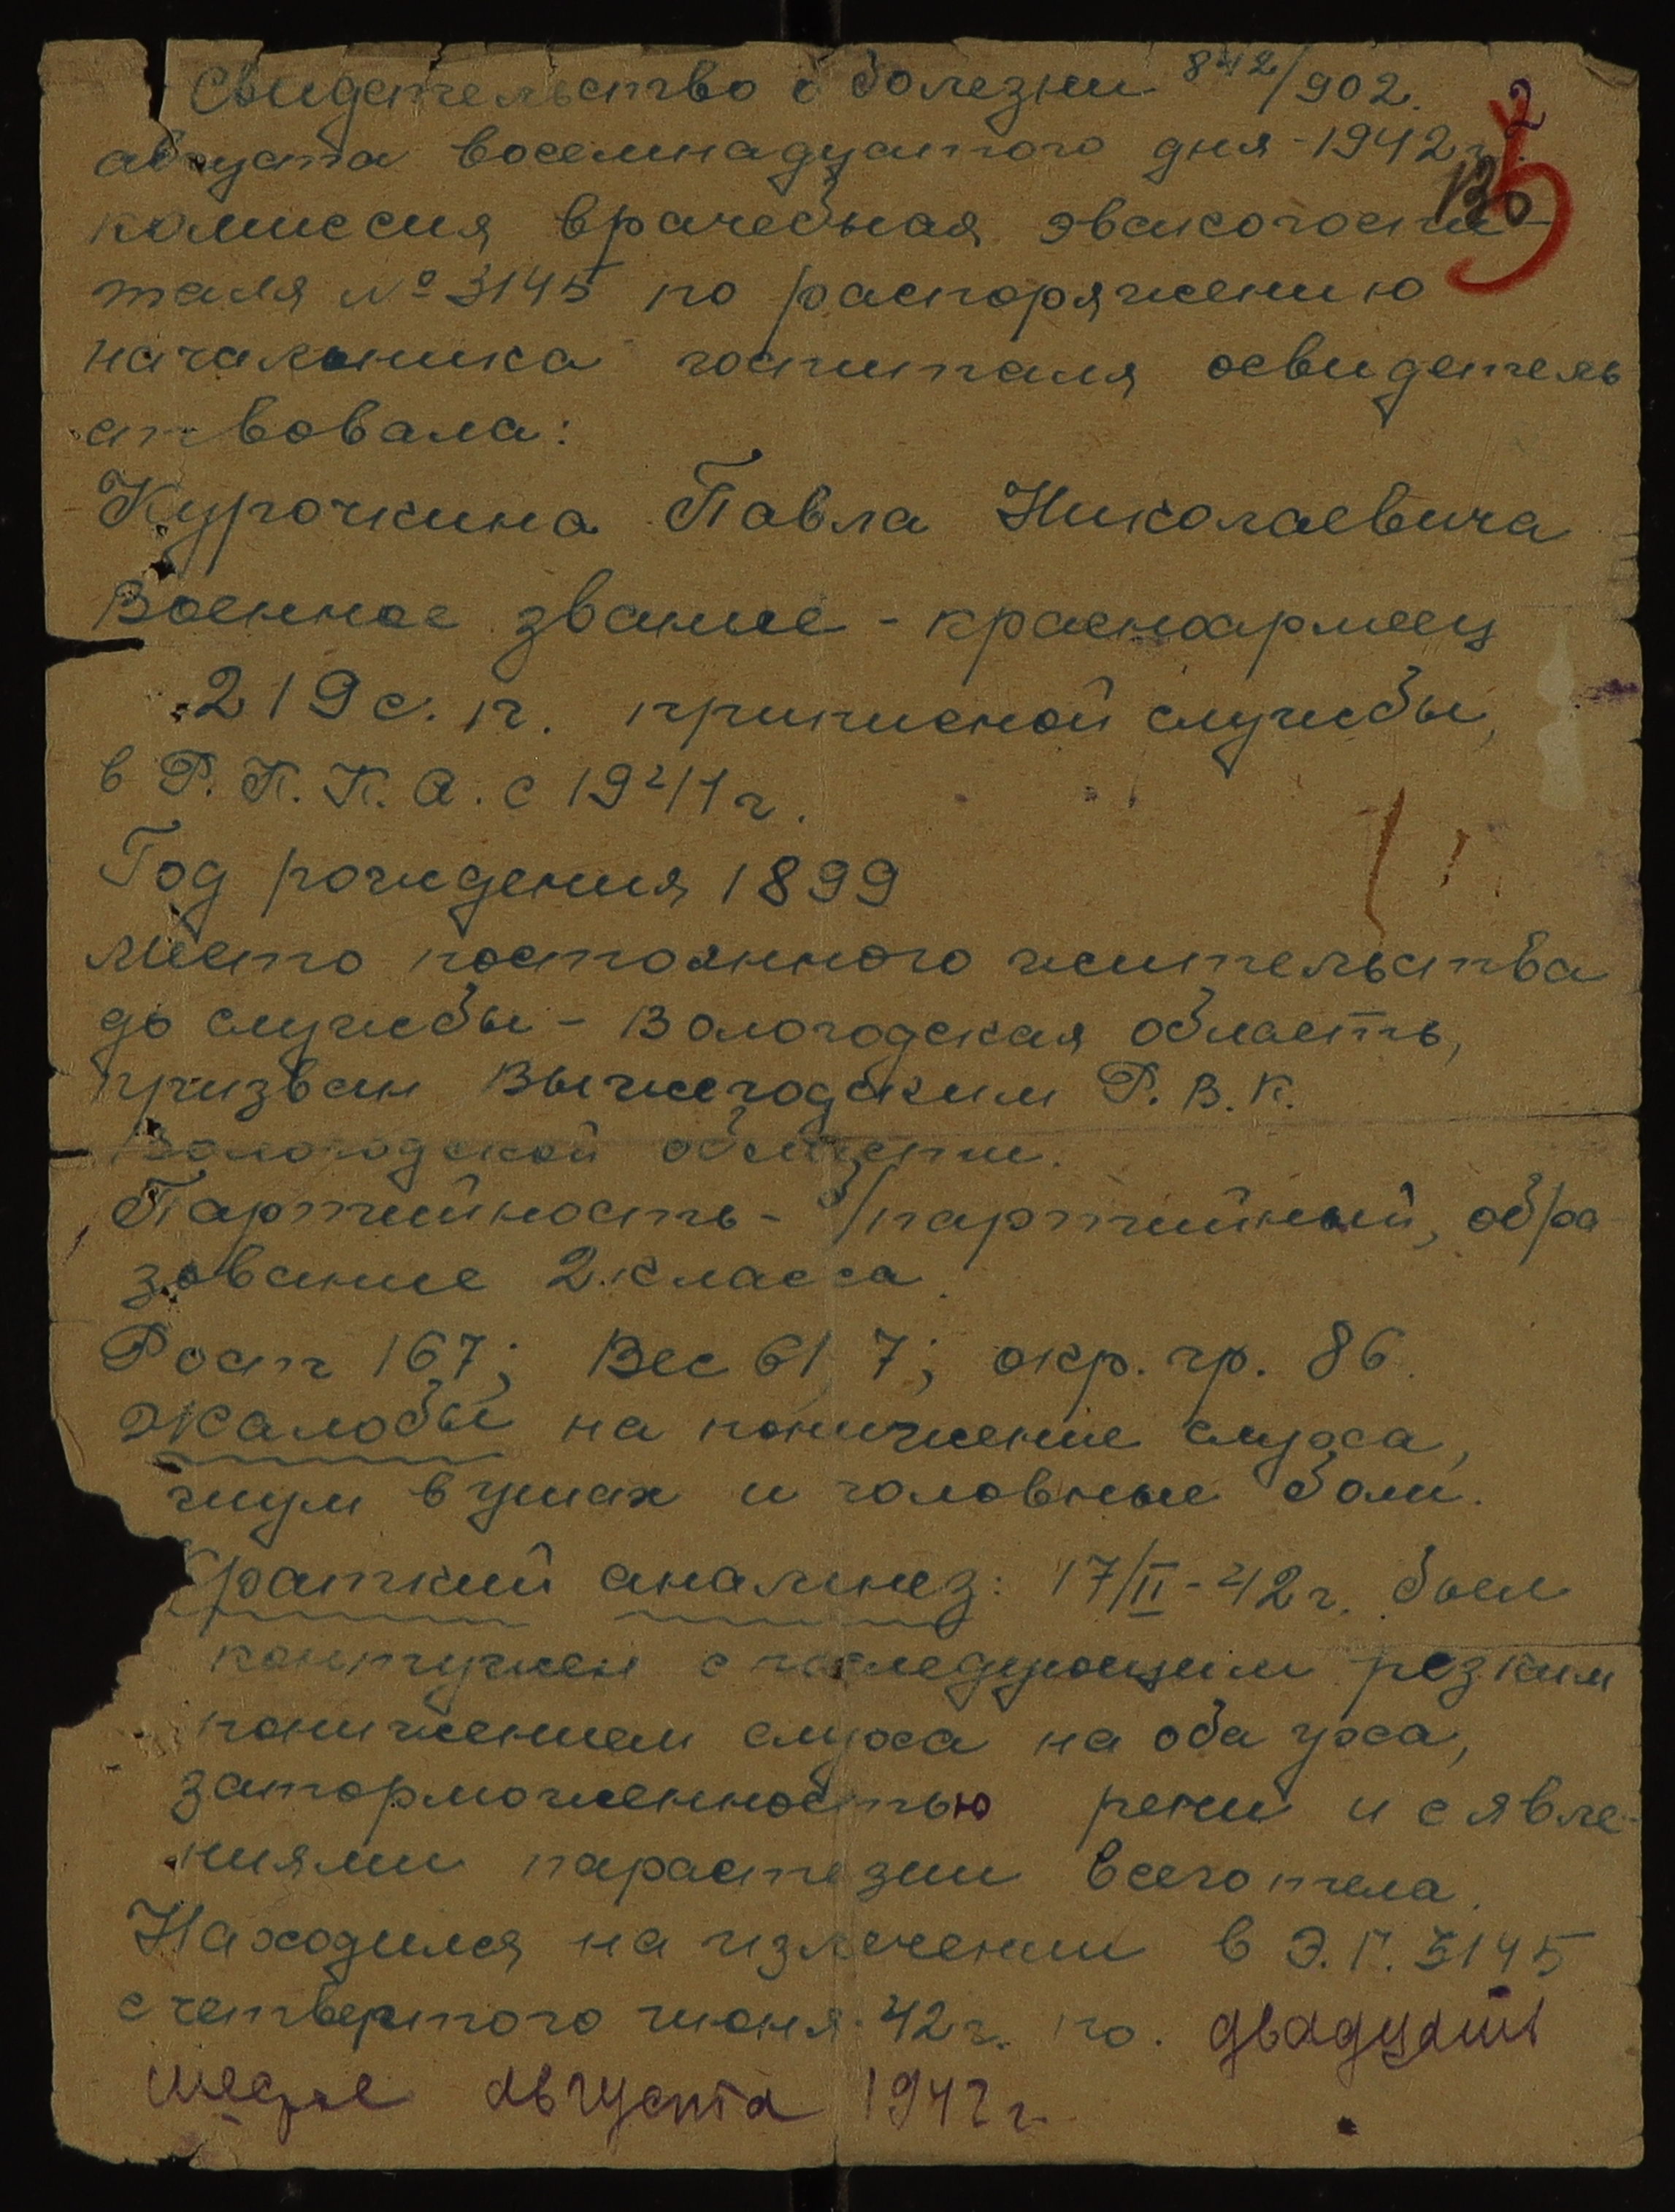 Свидетельство о болезни 842/902.
2
августа восемнадцатого дня - 1942 г.
комиссия врачебная эвакогоспи-
таля № 3145 по распоряжению
начальника госпиталя освидетель
ствовала:
Курочкина Павла Николаевича
Военное звание - красноармеец
219 с. п. приписной службы,
в Р. К. К. А. с 1941 г.
Год рождения 1899
Место постоянного жительства
до службы - Вологодская область,
призван Вычегодским Р. В. К.
Вологодской области.
Партийность - б/партийный, обра
зование 2 класса.
Рост 167; Вес 61,7; окр. гр. 86.
Жалобы на понижение слуха,
шум в ушах и головные боли.
Краткий анамнез: 17/II - 42 г. был
контужен с последующим резким
понижением слуха на оба уха,
заторможенностью речи и с явле-
ниями парастезии всего тела.
Находился на излечении в Э. Г. 3145
с четвертого июня 42 г. по двадцать
августа 1942 г.